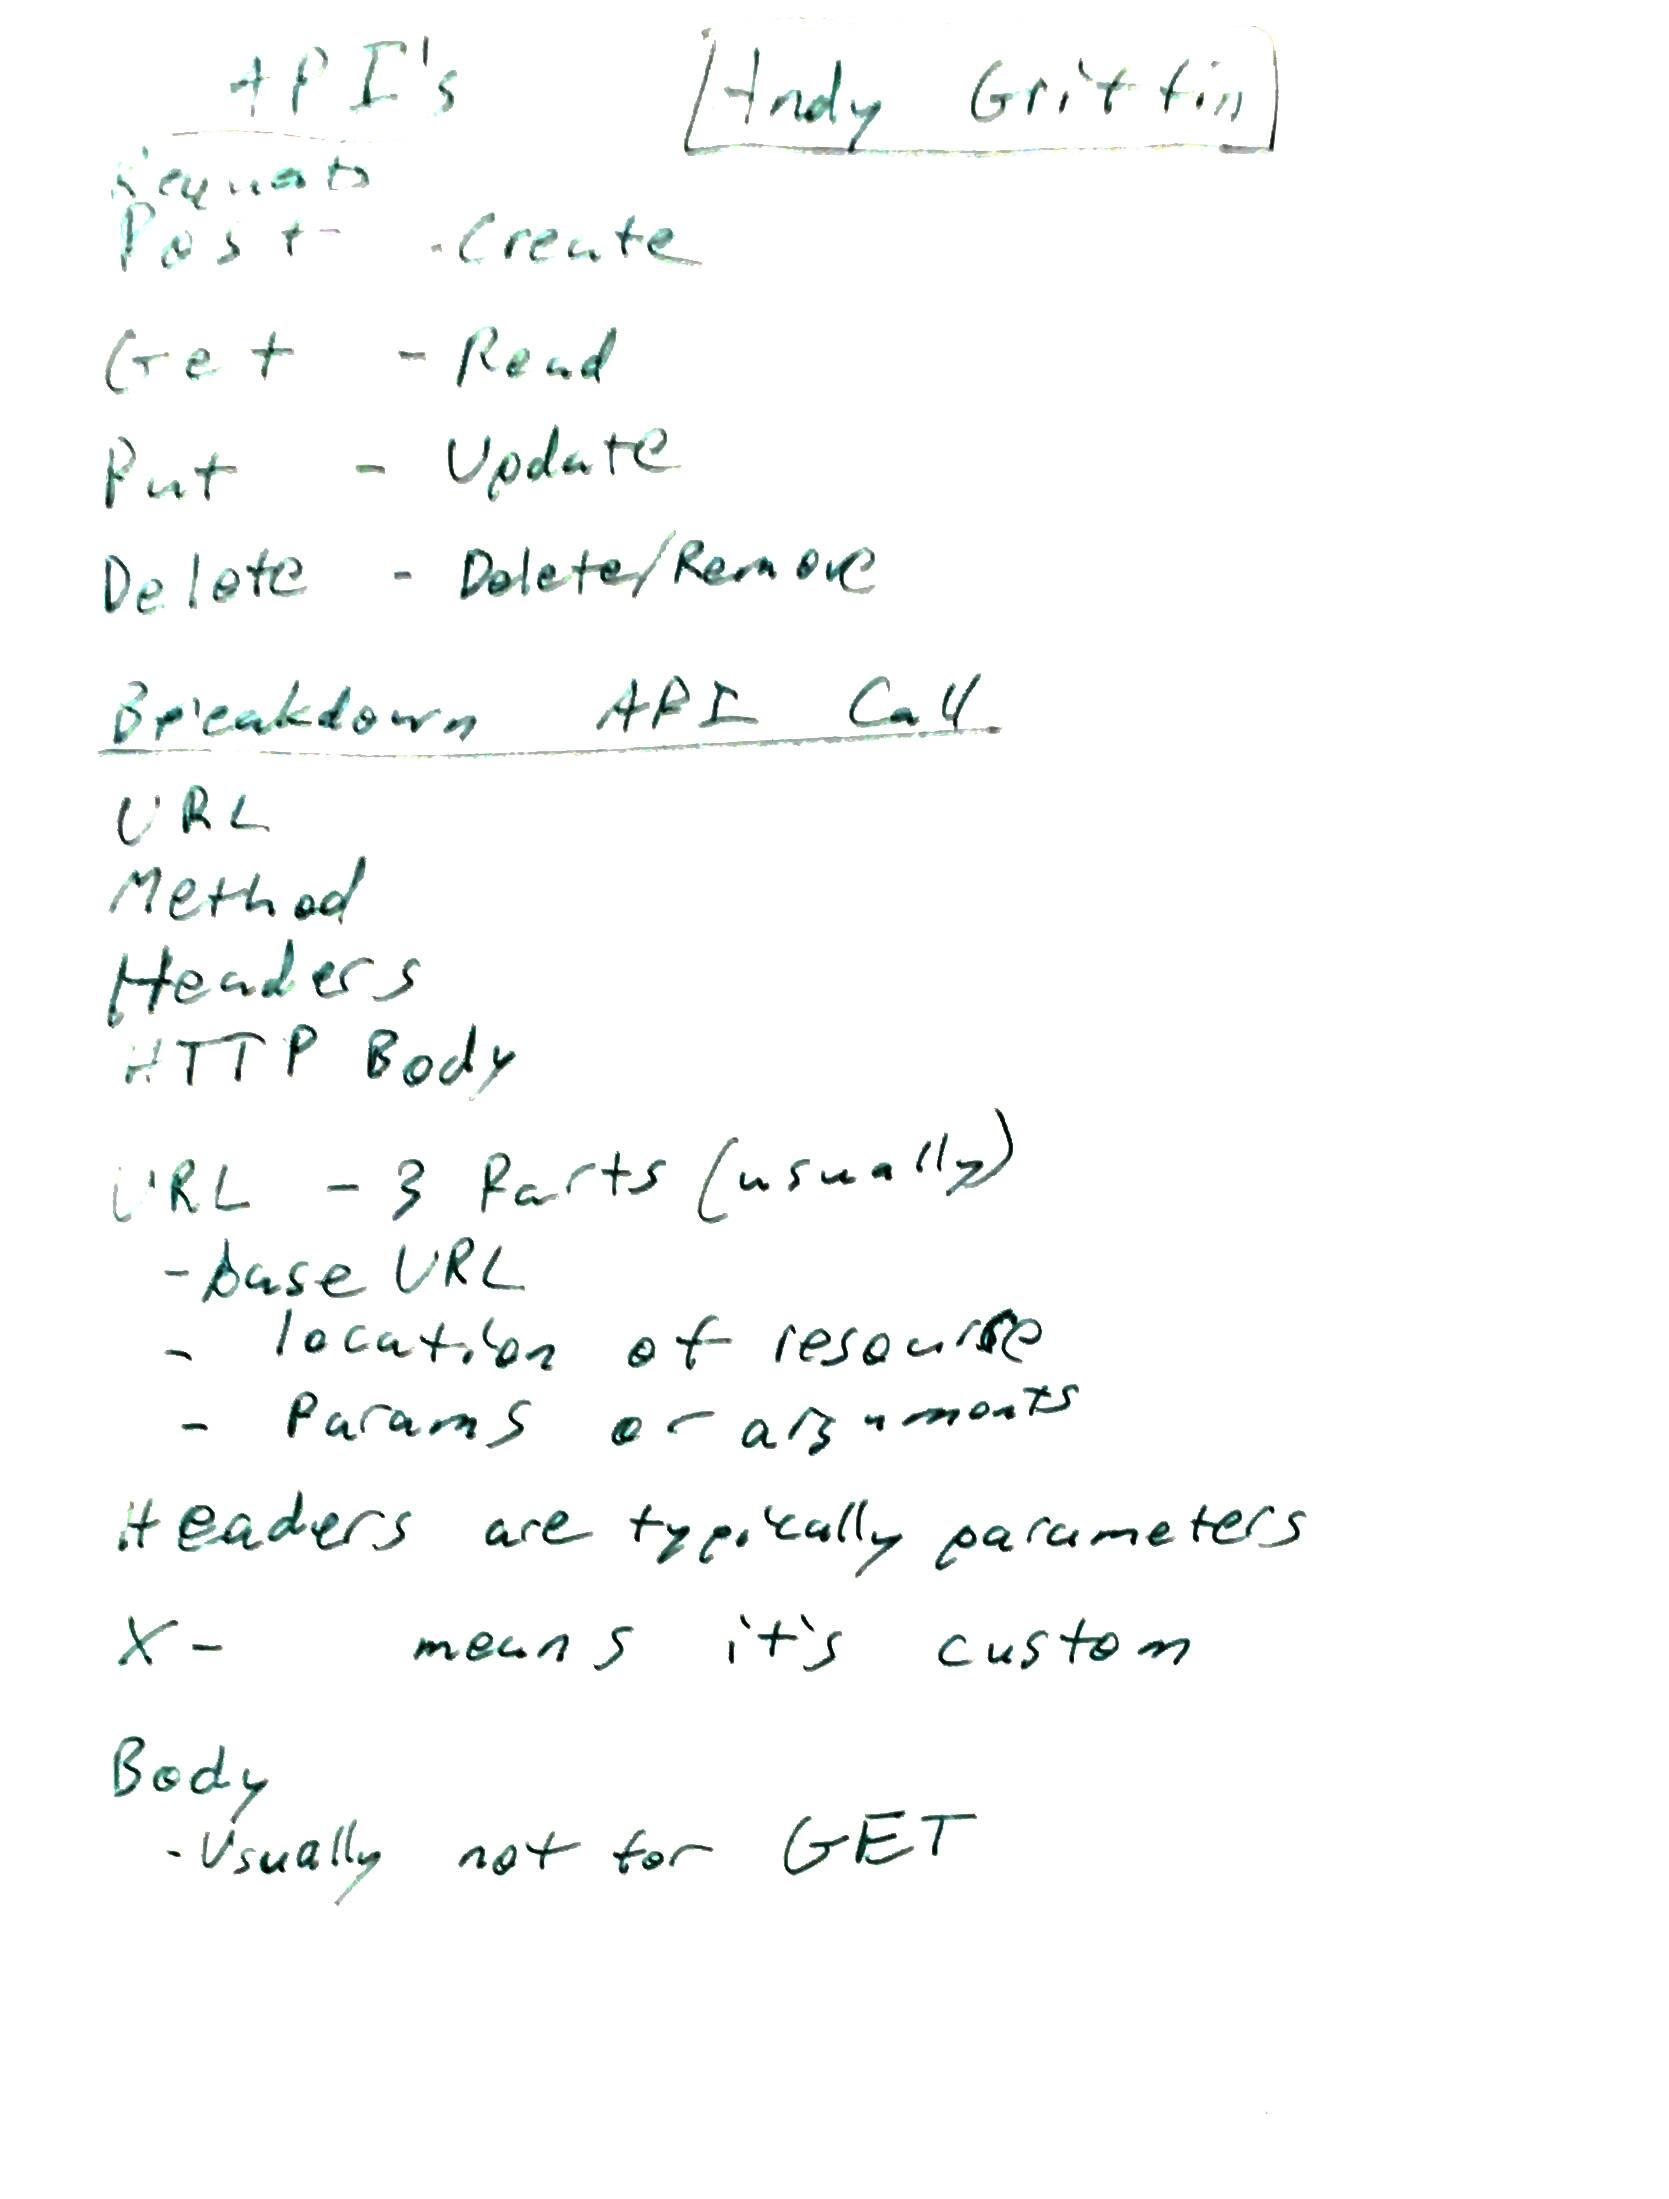 API's Andy Griffin
Requests
Post - Create
Get - Read
Put - Update
Delete - Delete/Remove
Breakdown API Call
URL
Method
Headers
HTTP Body
URL - 3 Parts (usually)
- base URL
- location of resource
- Params or arguments
Headers are typically parameters
X- means it's custom
Body
- Usually not for GET